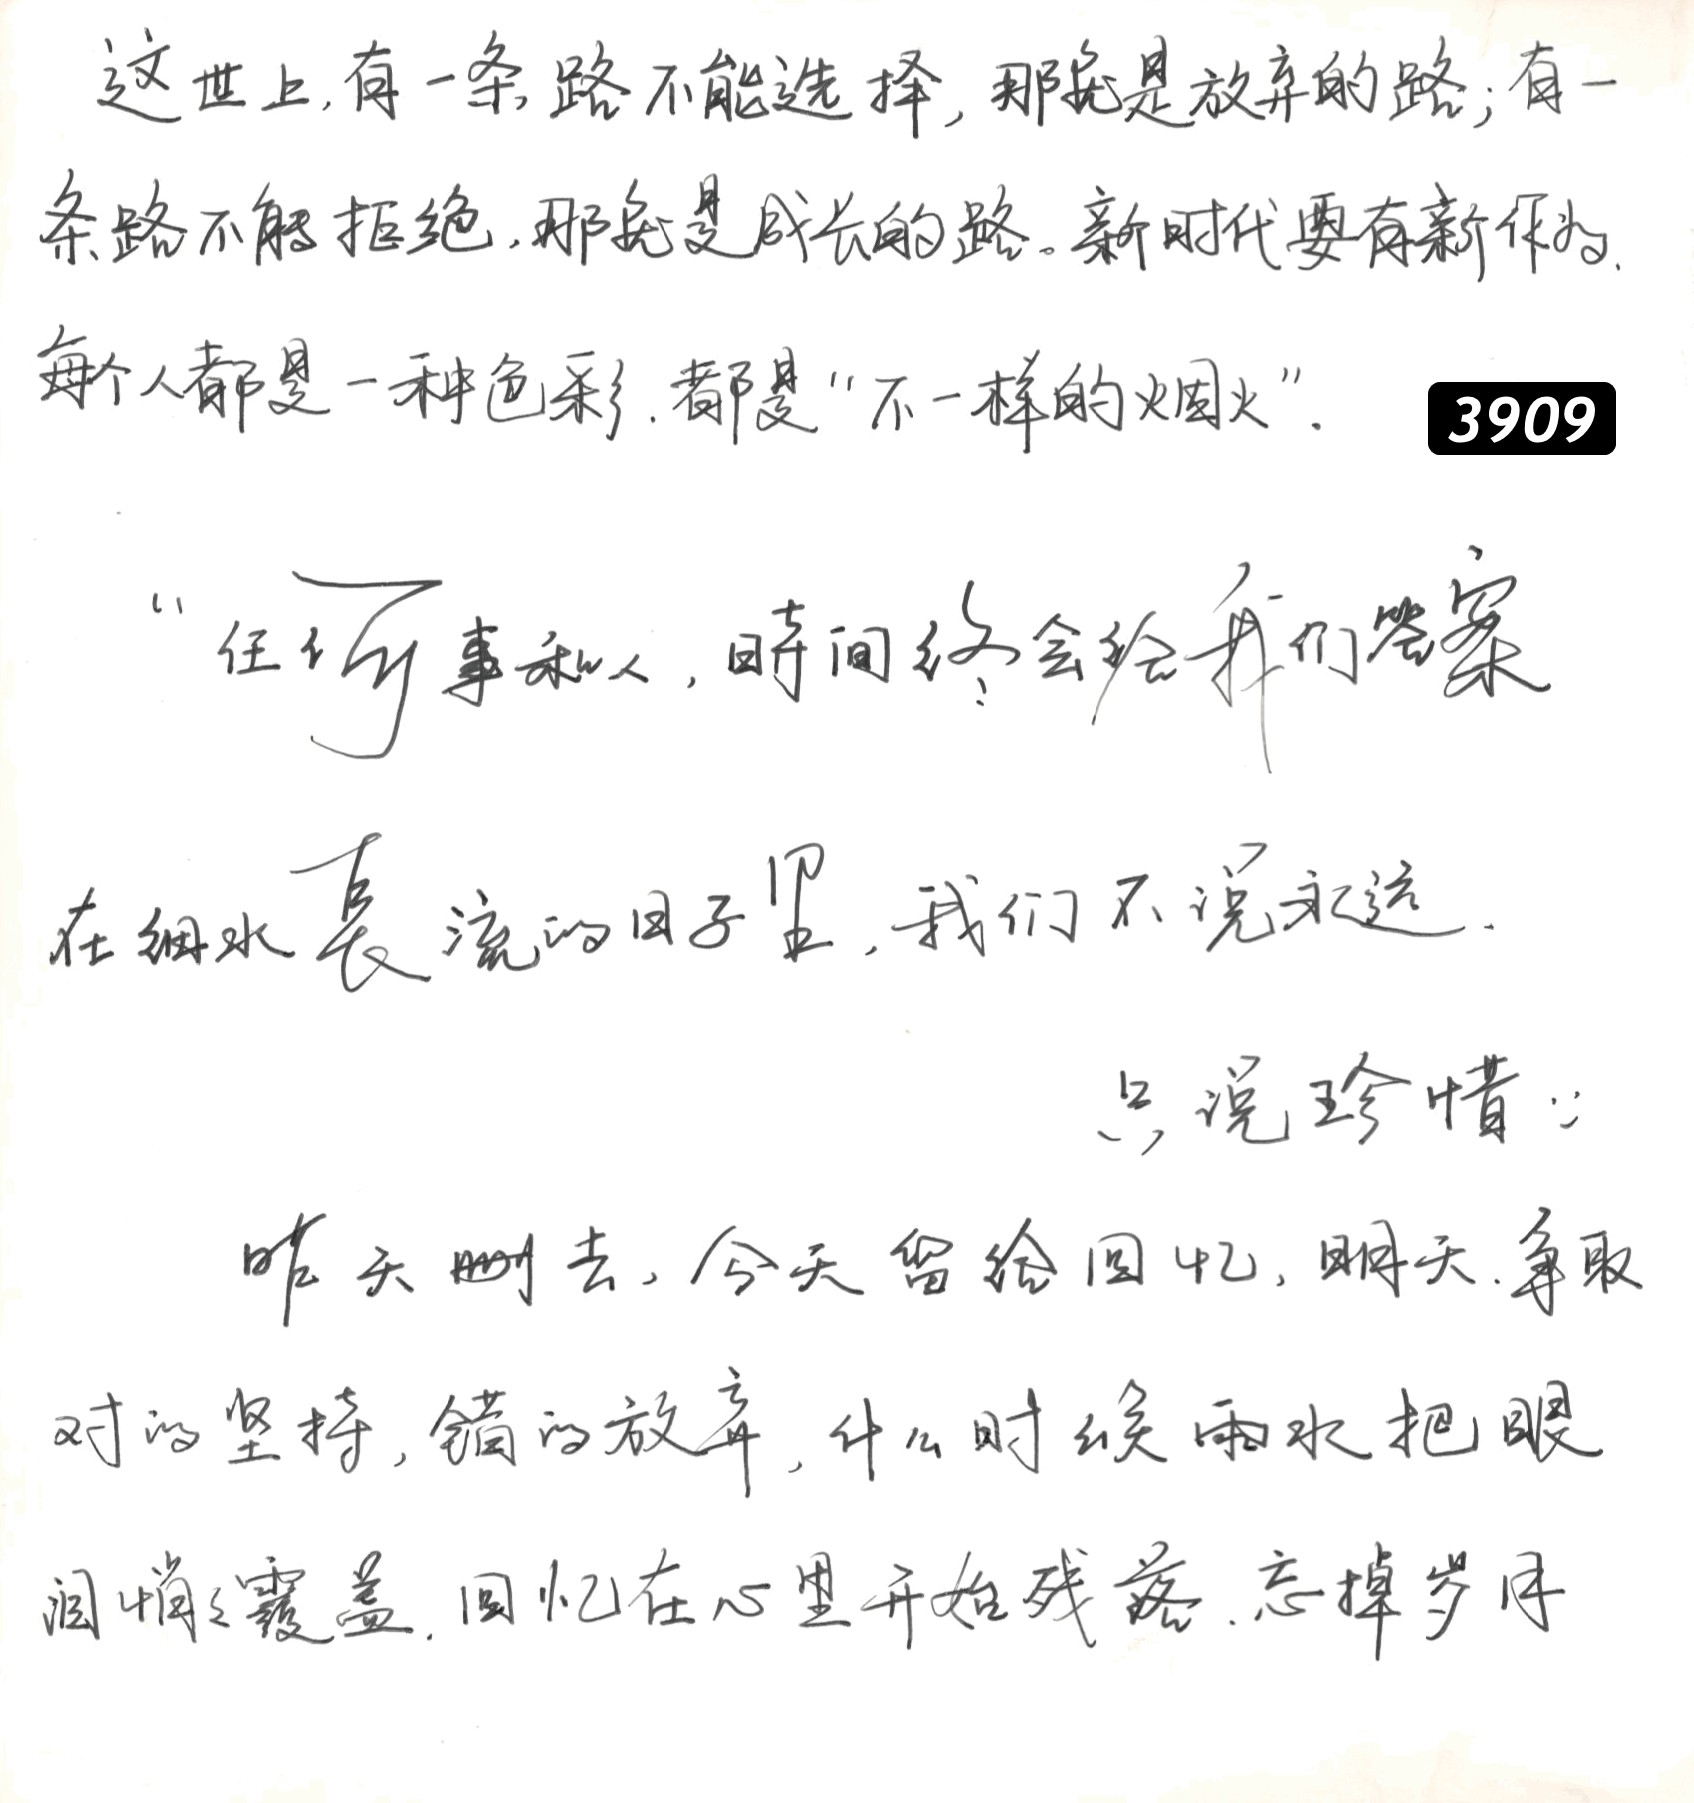 这世上,有一条路不能选择,那就是放弃的路;有一
条路不能拒绝,那就是成长的路。新时代要有新作为.
每个人都是一种色彩.都是“不一样的烟火”.
3909
“任何事和人,時间终会给我们答案
在细水長流的日子里,我们不说永远.
只说珍惜:
昨天删去,今天留给回忆,明天.争取
对的坚持,错的放弃,什么时候雨水把眼
泪悄悄覆盖.回忆在心里开始残落.忘掉岁月